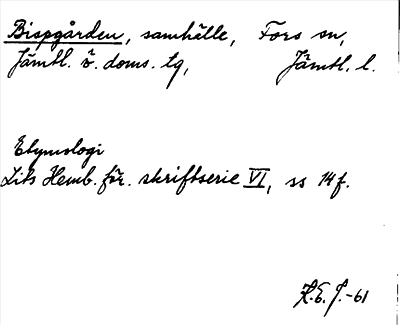 Bispgården, samhälle, Fors sn,
Jämtl. ö. doms. tg, Jämtl. l.
Etymologi
Lits Hemb. för. skriftserie VI, ss 14 f.
H.E.J. -61